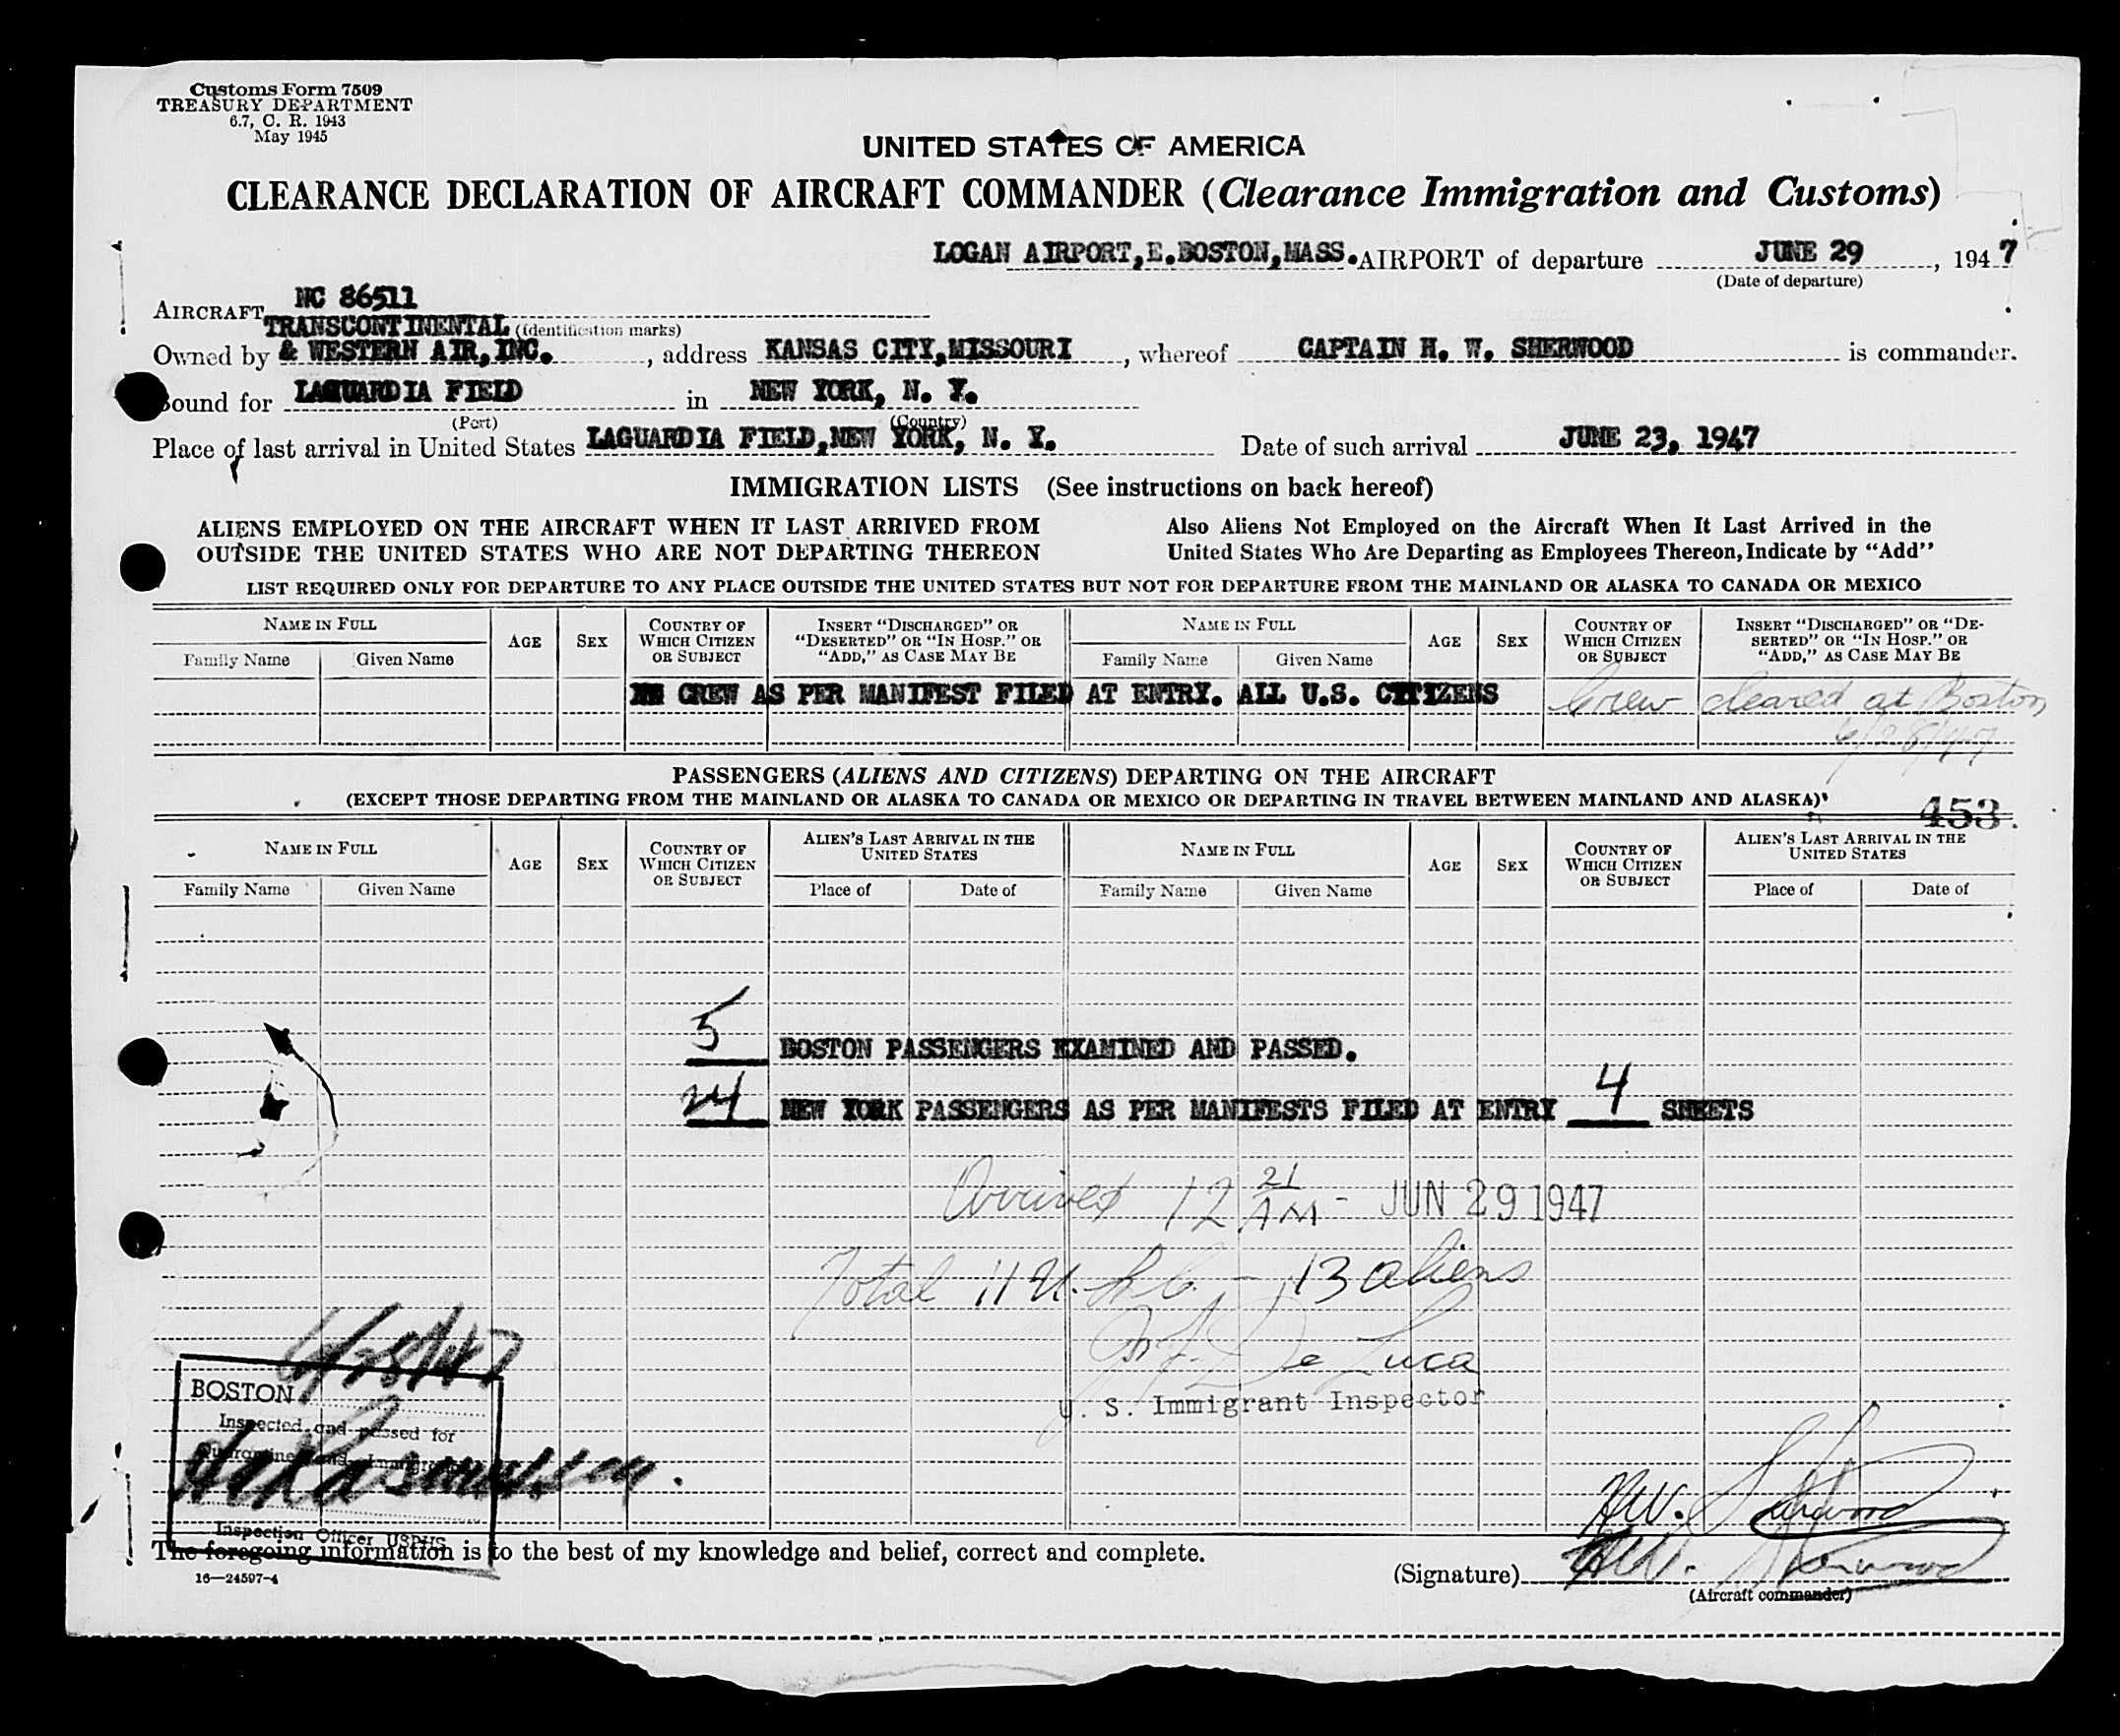 Customs Form 7509
TREASURY DEPARTMENT
6.7, C. R. 1943
May 1945
UNITED STATES OF AMERICA
CLEARANCE DECLARATION OF AIRCRAFT COMMANDER (Clearance Immigration and Customs)
LOGAN AIRPORT, E. BOSTON, MASS. AIRPORT of departure JUNE 29, 1947
(Date of departure)
AIRCRAFT NC 86511
TRANSCONTINENTAL (Identification marks)
Owned by & WESTERN AIR, INC., address KANSAS CITY, MISSOURI, whereof CAPTAIN H. W. SHERWOOD is commander.
Bound for LAGUARDIA FIELD in NEW YORK, N. Y.
(Port) (Country)
Place of last arrival in United States LAGUARDIA FIELD, NEW YORK, N. Y. Date of such arrival JUNE 23, 1947
IMMIGRATION LISTS (See instructions on back hereof)
ALIENS EMPLOYED ON THE AIRCRAFT WHEN IT LAST ARRIVED FROM OUTSIDE THE UNITED STATES WHO ARE NOT DEPARTING THEREON
Also Aliens Not Employed on the Aircraft When It Last Arrived in the United States Who Are Departing as Employees Thereon, Indicate by "Add"
LIST REQUIRED ONLY FOR DEPARTURE TO ANY PLACE OUTSIDE THE UNITED STATES BUT NOT FOR DEPARTURE FROM THE MAINLAND OR ALASKA TO CANADA OR MEXICO
NAME IN FULL AGE SEX COUNTRY OF WHICH CITIZEN OR SUBJECT INSERT "DISCHARGED" OR "DESERTED" OR "IN HOSP." OR "ADD," AS CASE MAY BE NAME IN FULL AGE SEX COUNTRY OF WHICH CITIZEN OR SUBJECT INSERT "DISCHARGED" OR "DESERTED" OR "IN HOSP." OR "ADD," AS CASE MAY BE
Family Name Given Name Family Name Given Name
CREW AS PER MANIFEST FILED AT ENTRY. ALL U.S. CITIZENS Crew cleared at Boston
6/28/47
PASSENGERS (ALIENS AND CITIZENS) DEPARTING ON THE AIRCRAFT
(EXCEPT THOSE DEPARTING FROM THE MAINLAND OR ALASKA TO CANADA OR MEXICO OR DEPARTING IN TRAVEL BETWEEN MAINLAND AND ALASKA)
453
NAME IN FULL AGE SEX COUNTRY OF WHICH CITIZEN OR SUBJECT ALIEN'S LAST ARRIVAL IN THE UNITED STATES NAME IN FULL AGE SEX COUNTRY OF WHICH CITIZEN OR SUBJECT ALIEN'S LAST ARRIVAL IN THE UNITED STATES
Family Name Given Name Place of Date of Family Name Given Name Place of Date of
5 BOSTON PASSENGERS EXAMINED AND PASSED.
24 NEW YORK PASSENGERS AS PER MANIFESTS FILED AT ENTRY 4 SHEETS
Arrived 12 21 AM - JUN 29 1947
Total 11 U.S.C. - 13 aliens
De Luca
U. S. Immigrant Inspector
6/28/47
BOSTON
Inspected and passed for
Quarantine and Immigration
Inspection Officer USPHS
H.W. Sherwood
The foregoing information is to the best of my knowledge and belief, correct and complete.
16—24597-4
(Signature) H.W. Sherwood
(Aircraft commander)